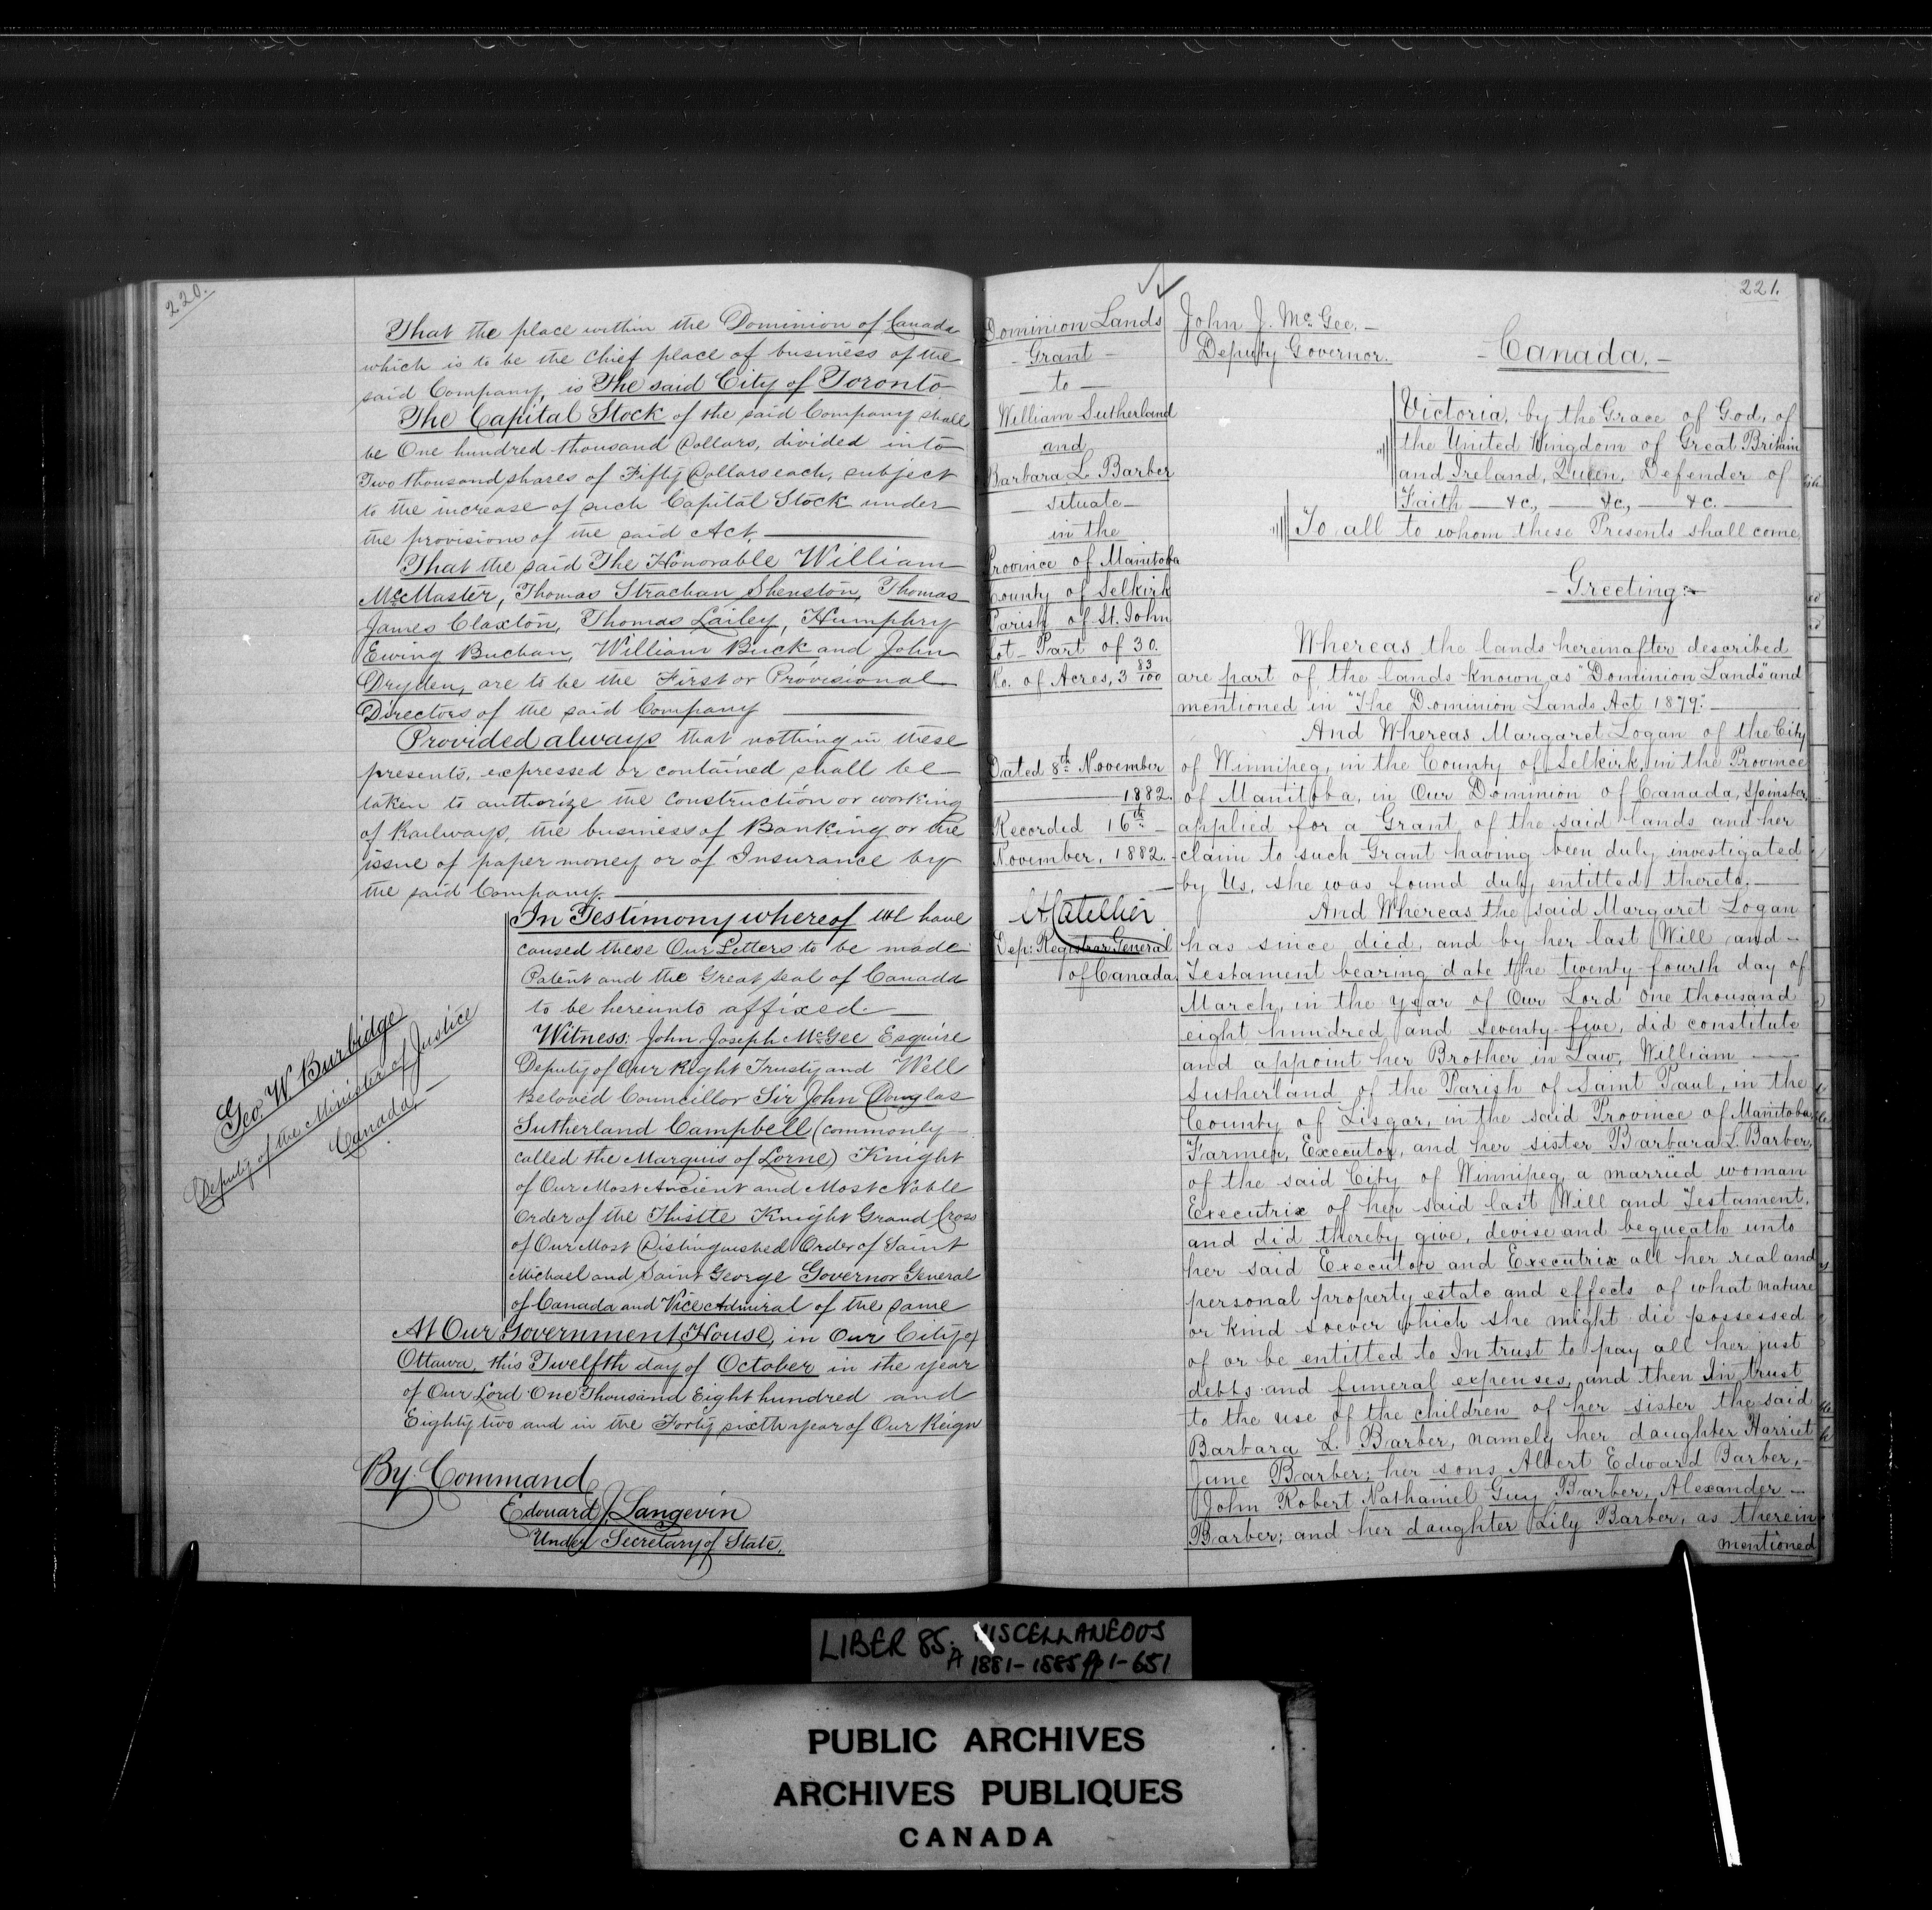 220.
That the place within the Dominion of Canada
which is to be the Chief place of business of the
said Company, is The said City of Toronto
The Capital Stock of the said Company shall
be One hundred thousand Dollars, divided into
Two thousand shares of Fifty Dollars each, subject
to the increase of such Capital Stock under
the provisions of the said Act.
That the said The Honorable William
McMaster, Thomas Strachan Shenston, Thomas
James Claxton, Thomas Lailey, Humphry
Ewing Buchan, William Buck and John
Dryden, are to be the First or Provisional
Directors of the said Company
Provided always that nothing in these
presents, expressed or contained shall be
taken to authorize the construction or working
of Railways, the business of Banking or the
issue of paper money or of Insurance by
the said Company
In Testimony whereof We have
caused these Our Letters to be made
Patent and the Great Seal of Canada
to be hereunto affixed.
Witness: John Joseph McGee Esquire
Deputy of Our Right Trusty and Well
Beloved Councillor Sir John Douglas
Sutherland Campbell (commonly
called the Marquis of Lorne) Knight
of Our Most Ancient and Most Noble
Order of the Thistle Knight Grand Cross
of Our Most Distinguished Order of Saint
Michael and Saint George Governor General
of Canada and Vice Admiral of the same
At Our Government House, in Our City of
Ottawa, this Twelfth day of October in the year
of Our Lord One Thousand Eight hundred and
Eighty two and in the Forty sixth year of Our Reign
By Command
Edouard J. Langevin
Under Secretary of State.
Geo. W. Burbidge
Deputy of the Minister of Justice
Canada
221.
Dominion Lands
- Grant -
to -
William Sutherland
and
Barbara L. Barber
- situate -
in the
Province of Manitoba
County of Selkirk
Parish of St. John
Lot - Part of 30.
No. of Acres, 3 83/100
Dated 8th November
1882.
Recorded 16th
November, 1882.
Dep: Registrar General
of Canada.
John J. McGee. -
Deputy Governor.
- Canada. -
Victoria, by the Grace of God, of
the United Kingdom of Great Britain
and Ireland, Queen, Defender of
Faith - &c., - &c., - &c. -
To all to whom these Presents shall come
- Greeting: -
Whereas the lands hereinafter described
are part of the lands known as "Dominion Lands" and
mentioned in "The Dominion Lands Act 1879."
And Whereas Margaret Logan of the City
of Winnipeg, in the County of Selkirk, in the Province
of Manitoba, in Our Dominion of Canada, Spinster,
applied for a Grant of the said lands and her
claim to such Grant having been duly investigated
by Us, she was found duly entitled thereto.
And Whereas the said Margaret Logan
has since died, and by her last Will and -
Testament bearing date the twenty-fourth day of
March, in the year of Our Lord One thousand
eight hundred and seventy-five, did constitute
and appoint her Brother in Law, William -
Sutherland of the Parish of Saint Paul, in the
County of Lisgar, in the said Province of Manitoba
Farmer, Executor, and her sister Barbara L. Barber,
of the said City of Winnipeg, a married woman
Executrix of her said last Will and Testament,
and did thereby give, devise and bequeath unto
her said Executor and Executrix all her real and
personal property estate and effects of what nature
or kind soever which she might die possessed
of or be entitled to In trust to pay all her just
debts and funeral expenses, and then In trust
to the use of the children of her sister the said
Barbara L. Barber, namely her daughter Harriet
Jane Barber; her sons Albert Edward Barber, -
John Robert Nathaniel Guy Barber, Alexander -
Barber; and her daughter Lily Barber, as therein
mentioned
LIBER 85. MISCELLANEOUS
A 1881-1885 pp 1-651
PUBLIC ARCHIVES
ARCHIVES PUBLIQUES
CANADA